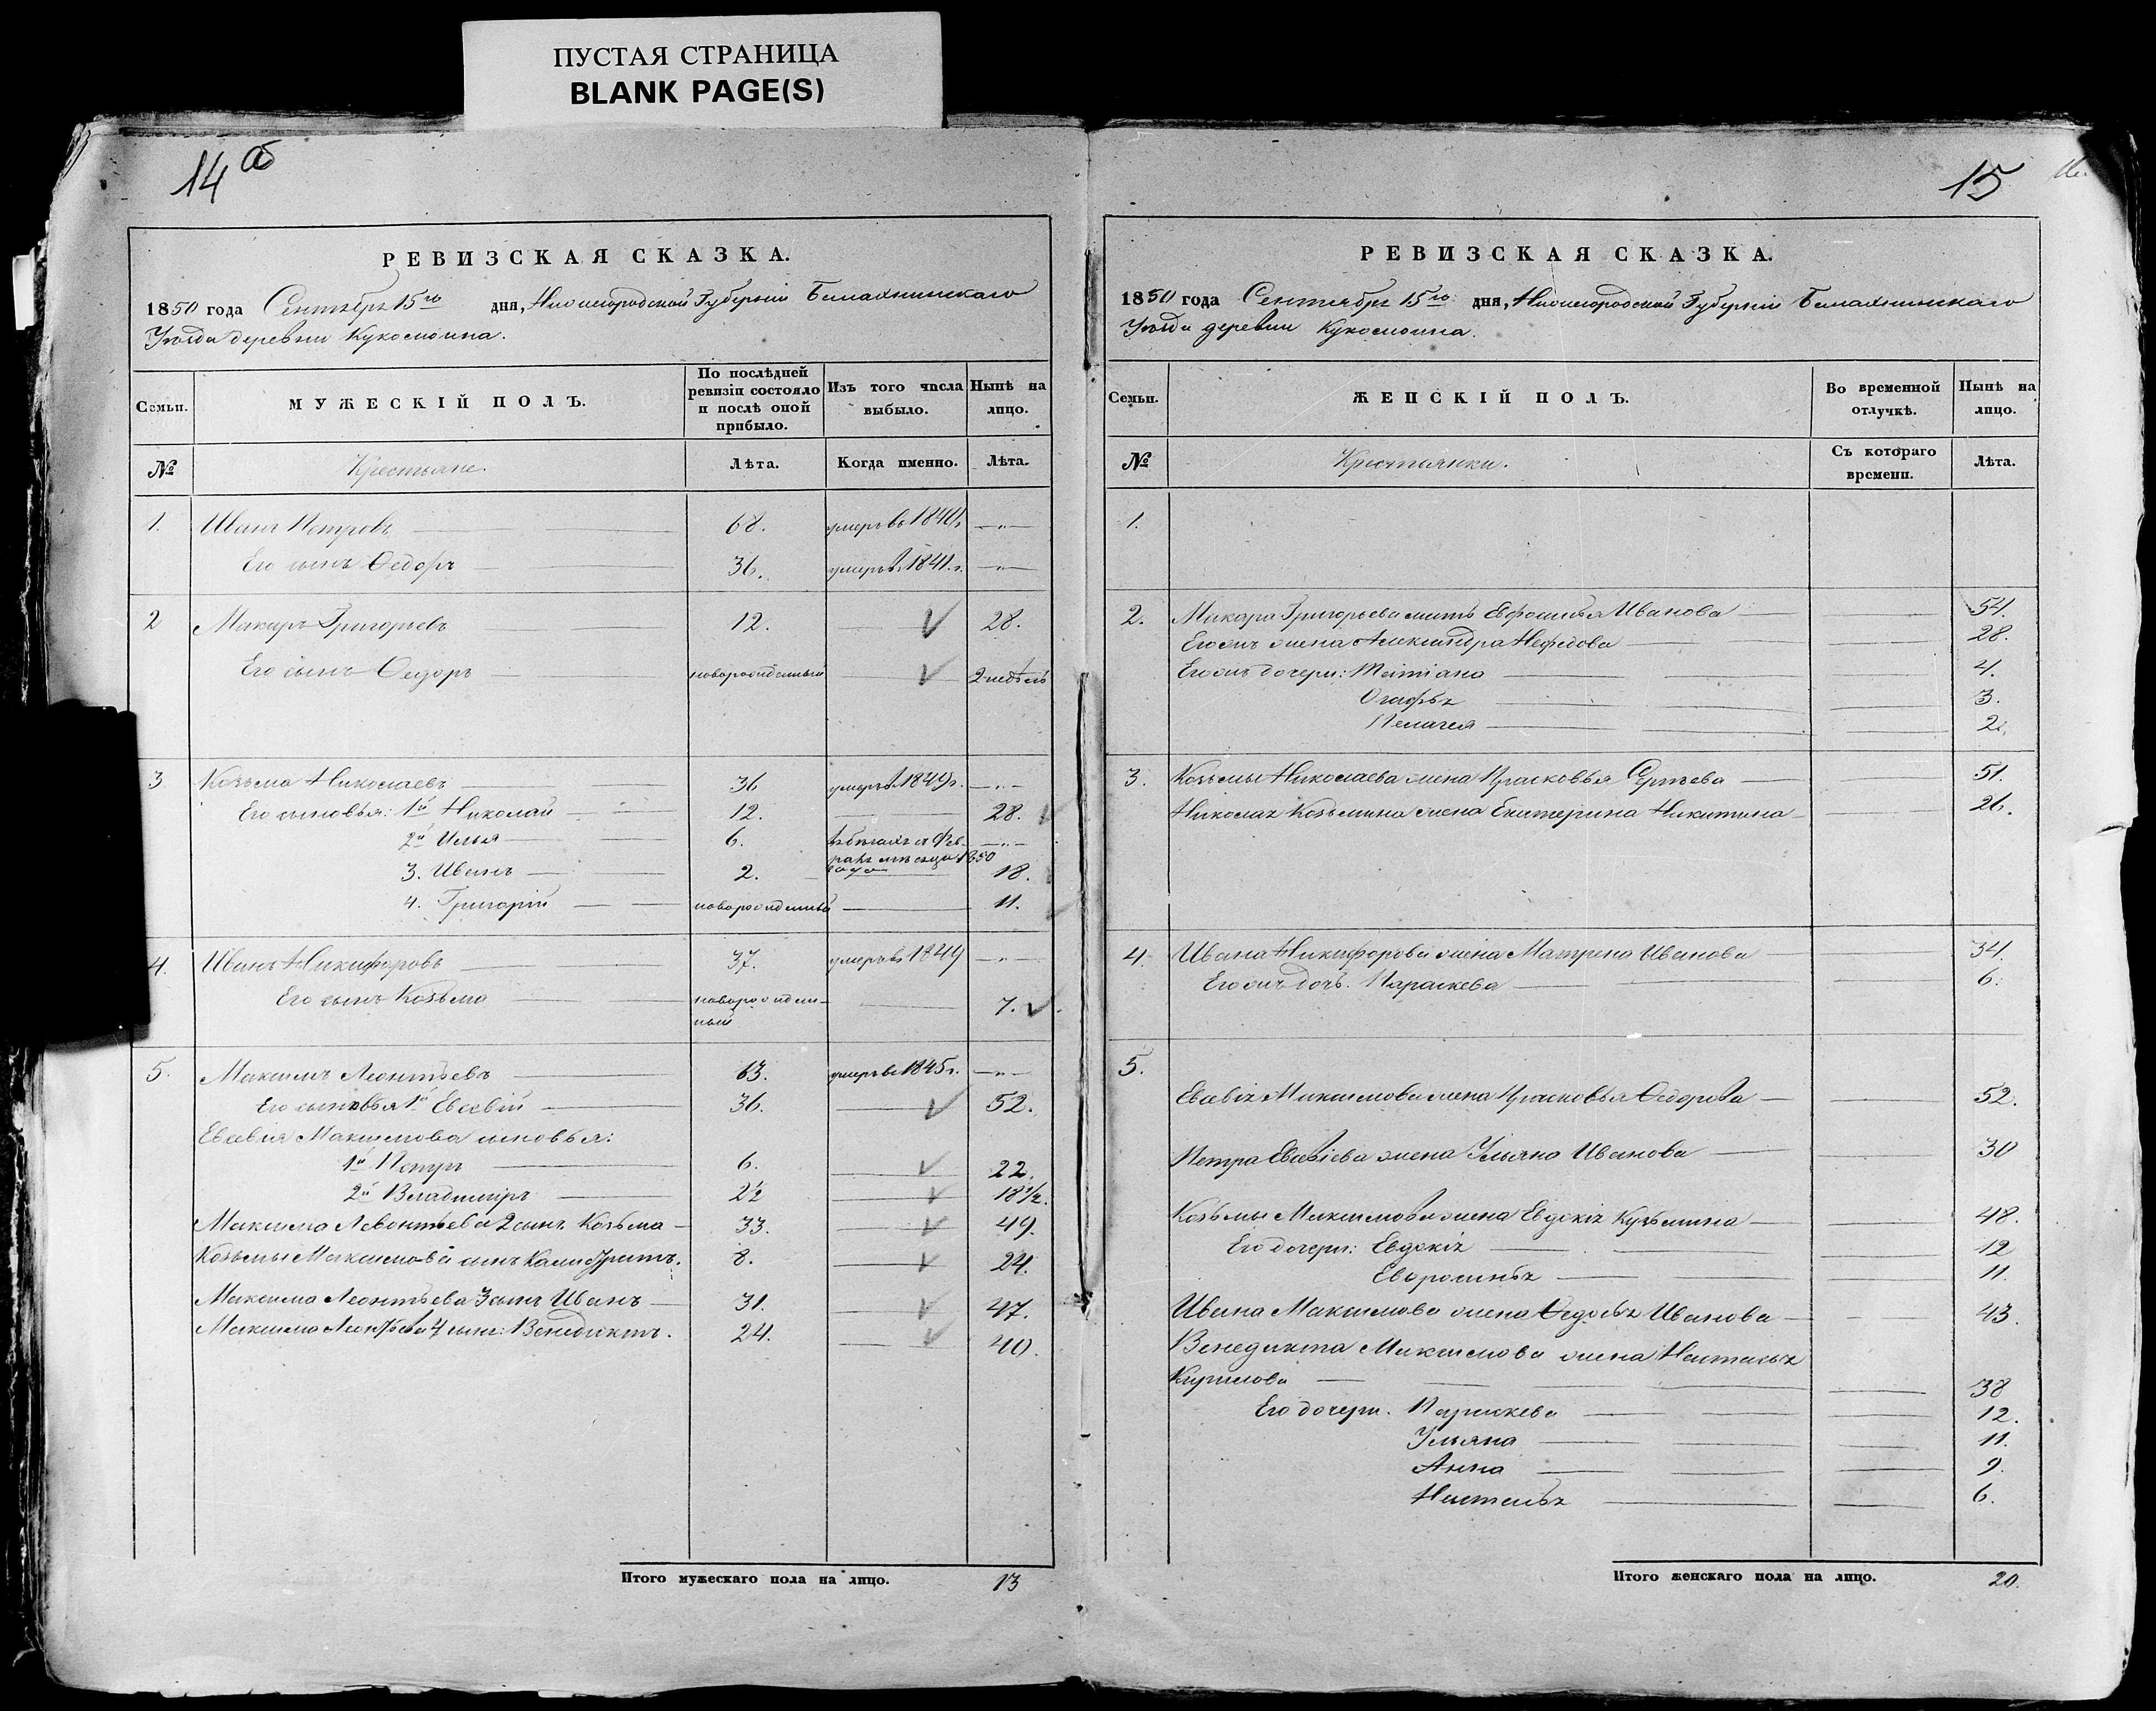 ПУСТАЯ СТРАНИЦА
BLANK PAGE(S)
14 об
РЕВИЗСКАЯ СКАЗКА.
1850 года Сентября 15го дня, Нижегородской Губерніи Балахнинскаго
Уѣзда деревни
Семьи. МУЖЕСКІЙ ПОЛЪ. По послѣдней ревизіи состояло и послѣ оной прибыло. Изъ того числа выбыло. Нынѣ на лицо.
№ Крестьяне. Лѣта. Когда именно. Лѣта.
1. Иванъ Петровъ 68. умеръ въ 1840 г. — „ —
Его сынъ Ѳедоръ 36. умеръ въ 1841 г. — „ —
2 Макаръ Григорьевъ 12. 28.
Его сынъ Ѳедоръ новорожденный 2 недѣль
3 Козьма Николаевъ 36 умеръ въ 1849 г. — „ —
Его сыновья: 1й Николай 12. 28.
2й Илья 6. въ бѣгахъ съ Фев- — „ —
раля мѣсяца 1850
года
3. Иванъ 2. 18.
4. Григорій новорожденный 11.
4. Иванъ Никифоровъ 37. умеръ въ 1849 — „ —
Его сынъ Козьма новорожден- 7.
ный
5. Максимъ Леонтьевъ 63. умеръ въ 1845 г. — „ —
Его сыновья 1й Евсевій 36. 52.
Евсевія Максимова сыновья:
1й Петръ 6. 22.
2й Владимиръ 2½ 18½.
Максима Левонтьева 2 сынъ Козьма 33. 49.
Козьмы Максимова сынъ 8. 24.
Максима Леонтьева 3 сынъ Иванъ 31. 47.
Максима Леонтьева 4 сынъ: Венедиктъ. 24. 40.
Итого мужескаго пола на лицо. 13
15
РЕВИЗСКАЯ СКАЗКА.
1850 года Сентября 15го дня, Нижегородской Губерніи Балахнинскаго
Уѣзда деревни
Семьи. ЖЕНСКІЙ ПОЛЪ. Во временной отлучкѣ. Нынѣ на лицо.
№ Крестьянки. Съ котораго времени. Лѣта.
1.
2. Макара Григорьева мать Евфосинья Иванова 54.
Его жъ жена Александра Нефедова 28.
Его жъ дочери: Татіана 4.
Огафья 3.
Пелагея 2.
3. Козьмы Николаева жена Прасковья Сергѣева 51.
Николая Козьмина жена Екатерина Никитина 26.
4. Ивана Никифорова жена Матрена Иванова 34.
Его жъ дочь. Параскева 6.
5.
Евсевія Максимова жена Прасковья Ѳедорова 52.
Петра Евсевіева жена Ульяна Иванова 30
Козьмы Максимова жена Евдокія Кузьмина 48.
Его дочери: Евдокія 12
11.
Ивана Максимова жена Ѳедосья Иванова 43.
Венедикта Максимова жена Наталья
Кирилова 38
Его дочери. Параскева 12.
Ульяна 11.
Анна 9.
Наталья 6.
Итого женскаго пола на лицо. 20.